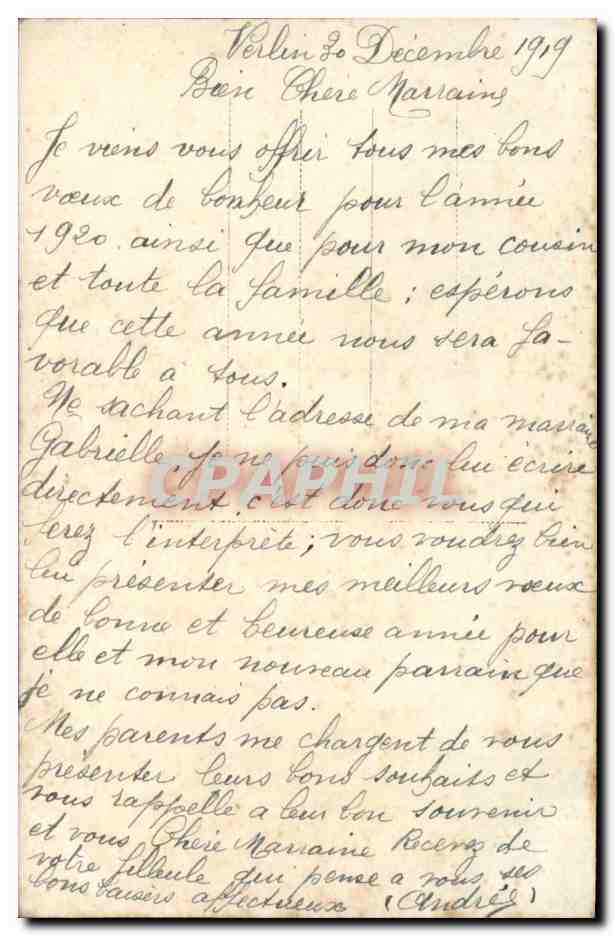 Verlin 30 Décembre 1919
Bien Chère Marraine
Je viens vous offrir tous mes bons
vœux de bonheur pour l'année
1920 ainsi que pour mon cousin
et toute la famille ; espérons
que cette année nous sera fa-
vorable à tous.
Ne sachant l'adresse de ma marraine
Gabrielle, je ne puis donc lui écrire
directement. c'est donc vous qui
serez l'interprète ; vous voudrez bien
lui présenter mes meilleurs vœux
de bonne et heureuse année pour
elle et mon nouveau parrain que
je ne connais pas.
Mes parents me chargent de vous
présenter leurs bons souhaits et
vous rappelle a leur bon souvenir
et vous Chère Marraine Recevez de
votre filleule qui pense a vous ses
bons baisers affectueux (Andrée)
CPAPHIL